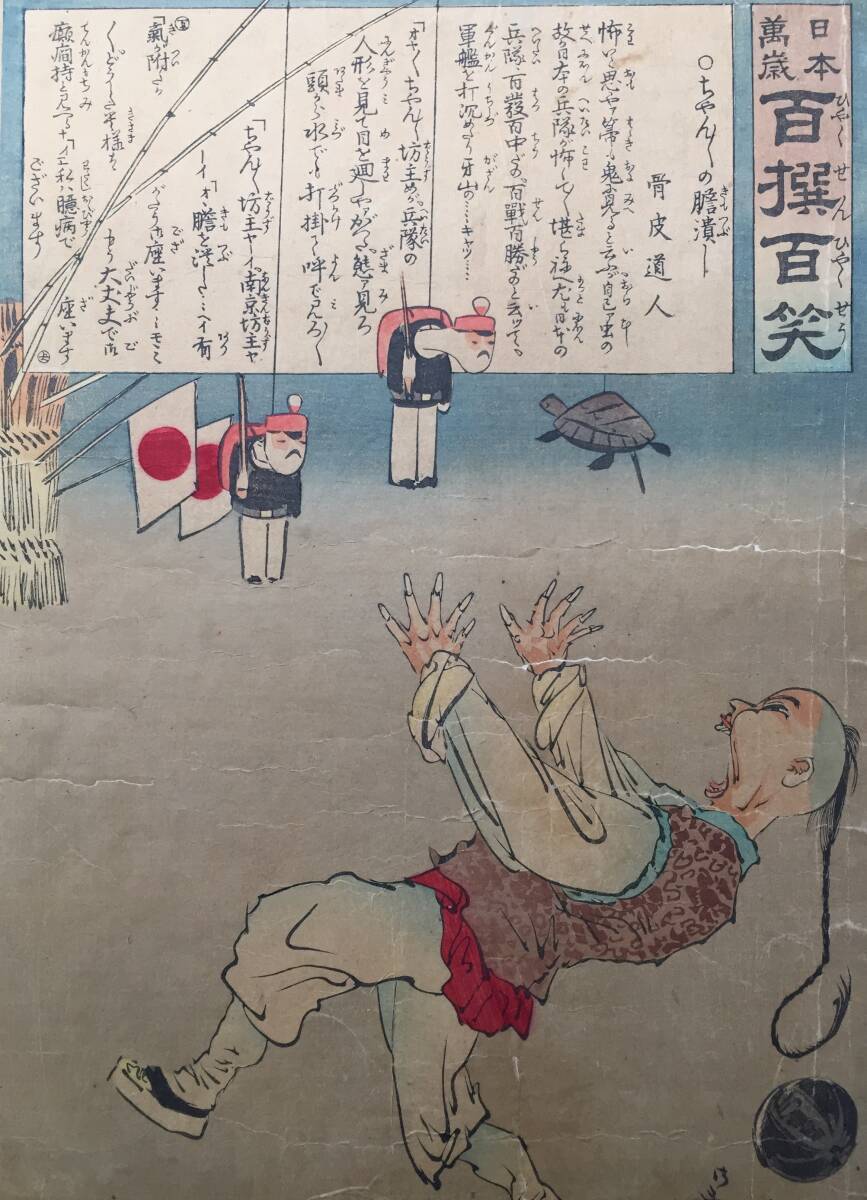 日本
萬歳
百撰百笑
ひやくせんひやくせう
○ちやん〱の膽潰し
骨皮道人
怖いと思やア箒も鬼に見ると云ふが自己ア虫の
故か日本の兵隊が怖しくて堪ら尤も日本の
兵隊ア百發百中だの百戰百勝だのと云ツて、
軍艦を打沈めたり牙山の…キヤツ…
「オヤ〱ちやん〱坊主めが兵隊の
人形を見て目を廻しやがつた、態ア見ろ
頭から水でも打掛けて呼でみろ〱
「ちやん〱坊主ヤイ、南京坊主ヤ
ーイ「オヽ膽を潰した…ヘイ有
がたう御座います
もう大丈夫で御
座います
「氣が附たか
どうした
癲癇持と見へるナ「イエ私ハ臆病で
ございます